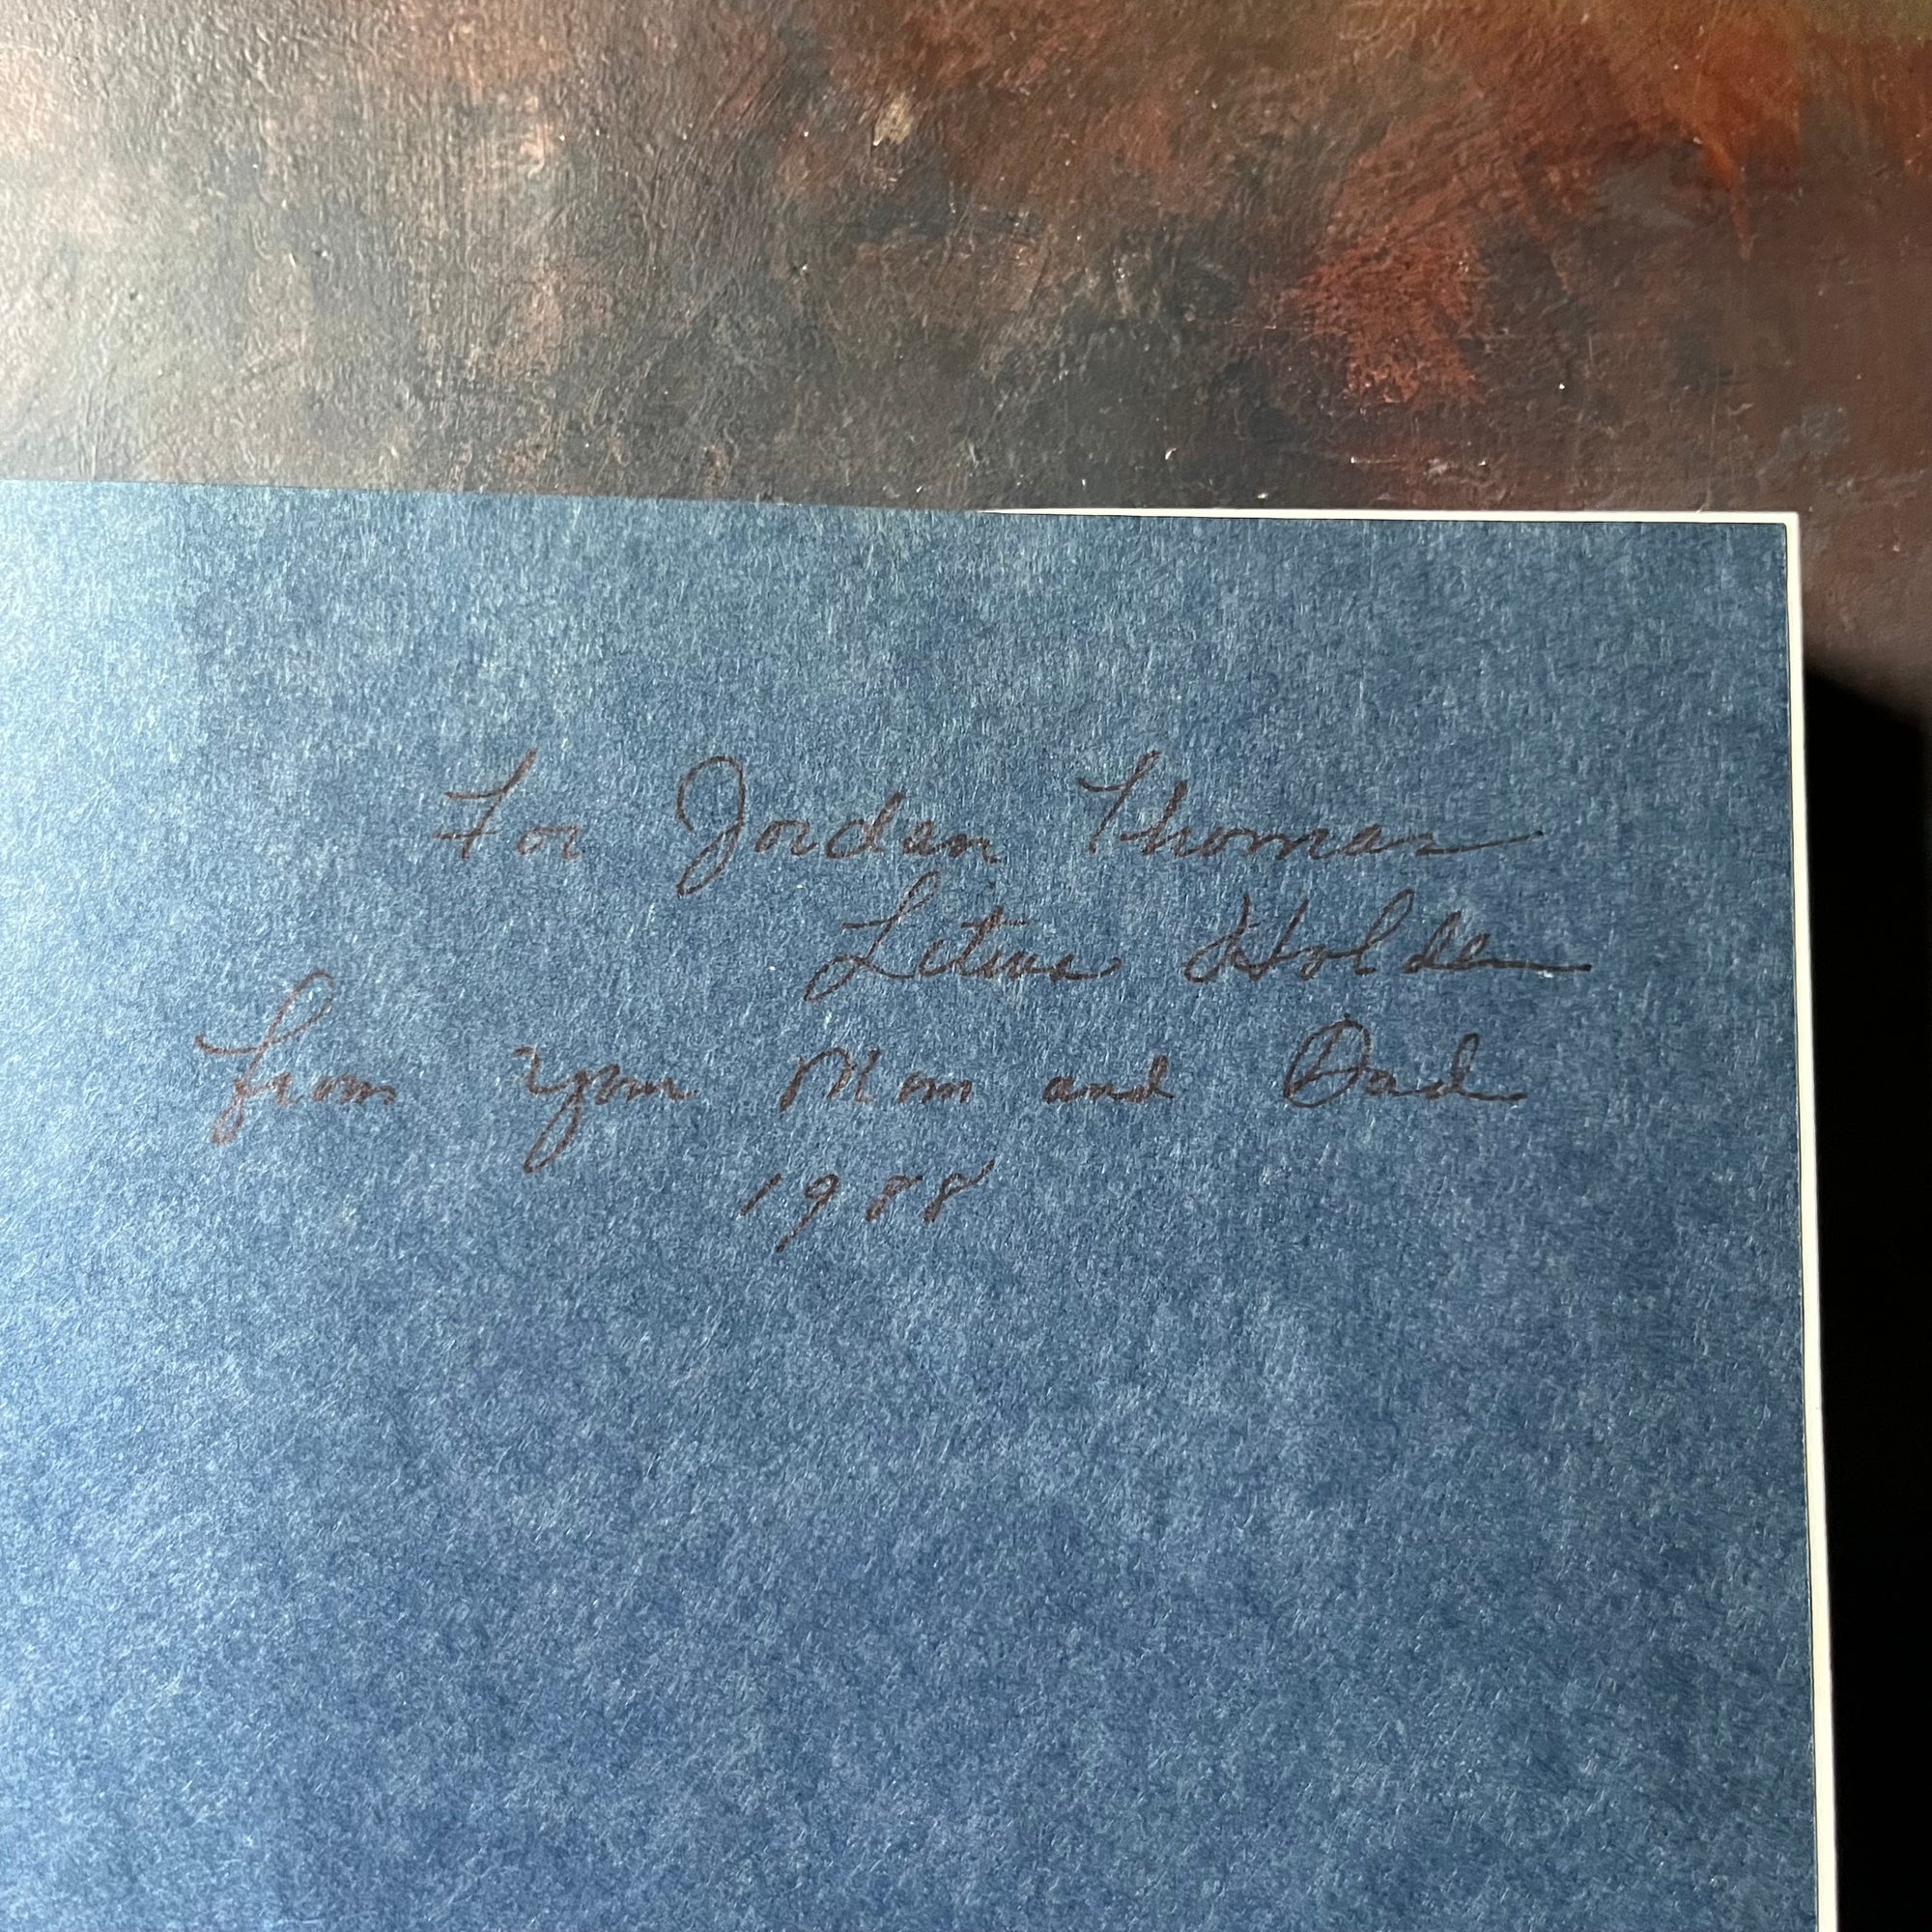 For Jordan Thomas
Holden
from your Mom and Dad
1988